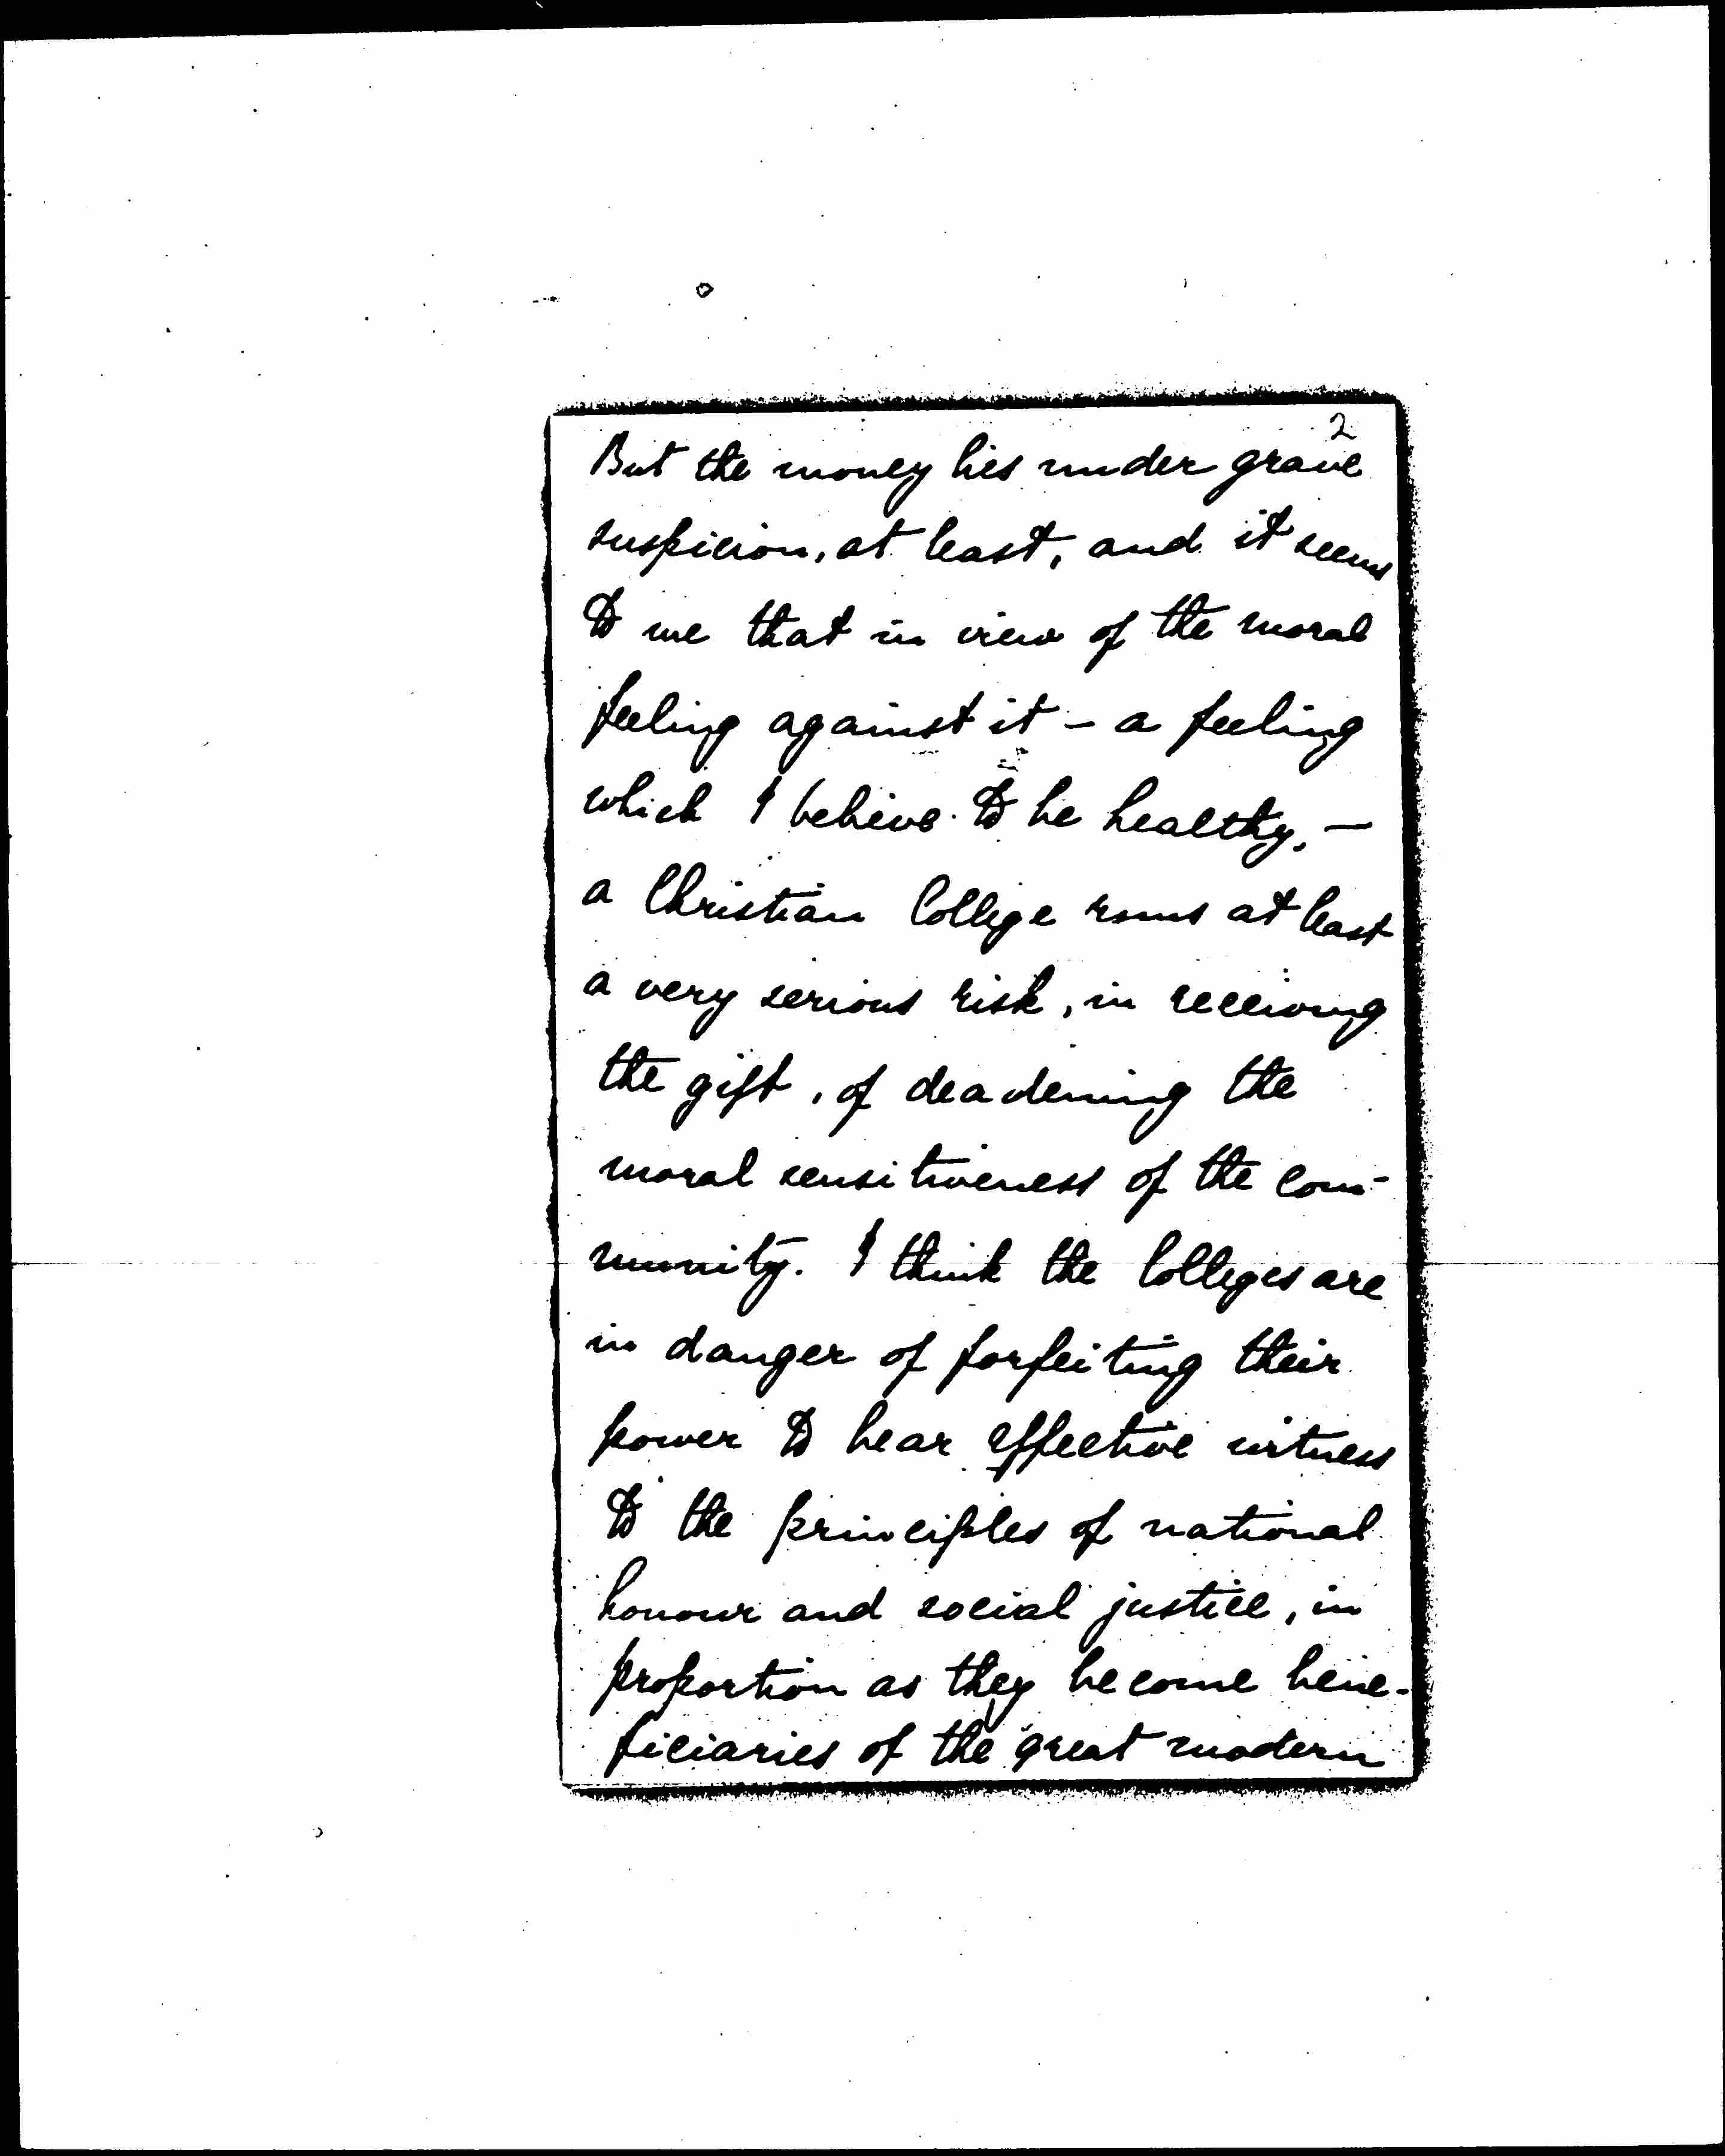 2
But the money lies under grave
suspicion, at least, and it seems
to me that in view of the moral
feeling against it - a feeling
which I believe to be healthy, -
a Christian College runs at least
a very serious risk, in receiving
the gift, of deadening the
moral sensitiveness of the com-
munity. I think the Colleges are
in danger of forfeiting their
power to bear effective witness
to the principles of national
honour and social justice, in
proportion as they become bene-
ficiaries of the great modern